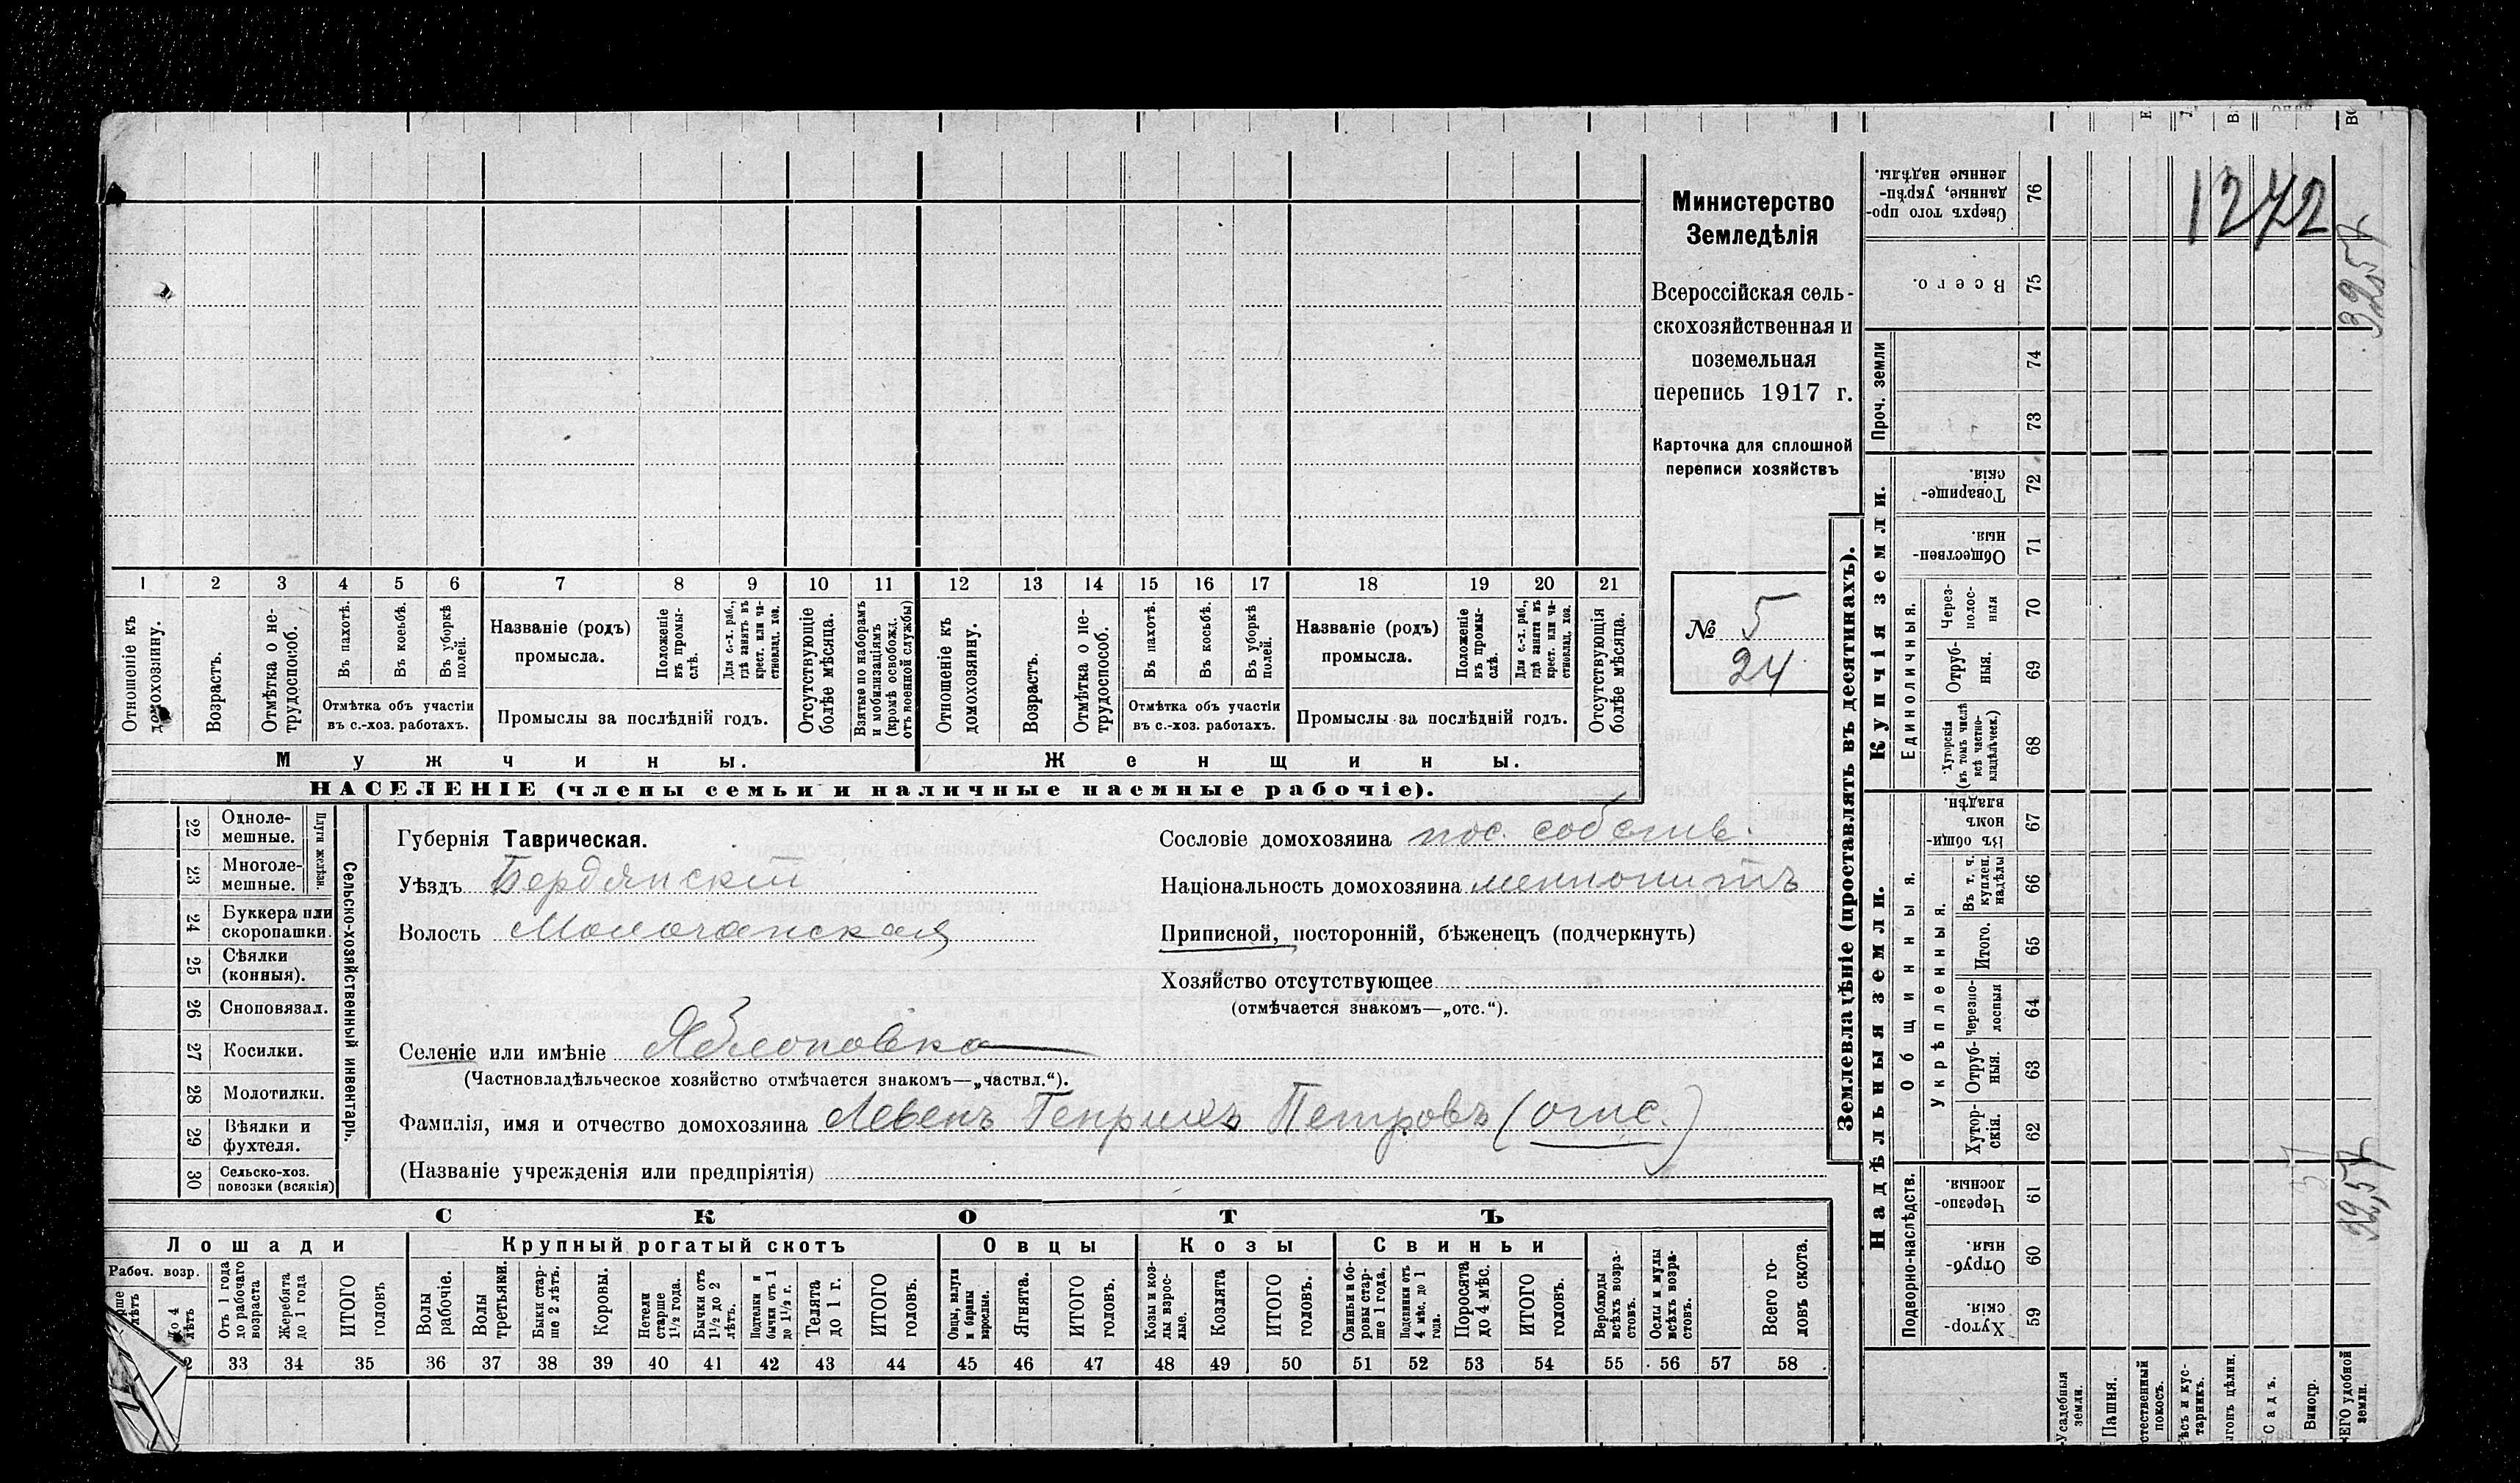 Министерство
Земледѣлія
Всероссійская сель-
скохозяйственная и
поземельная
перепись 1917 г.
Карточка для сплошной
переписи хозяйствъ
№ 5
24
1 2 3 4 5 6 7 8 9 10 11 12 13 14 15 16 17 18 19 20 21
Отношеніе къ домохозяину.
Возрастъ.
Отмѣтка о не-трудоспособ.
Въ пахотѣ.
Въ косьбѣ.
Въ уборкѣ полей.
Отмѣтка объ участіи
въ с.-хоз. работахъ.
Названіе (родъ)
промысла.
Положеніе въ промы-слѣ.
Для с.-х. раб., гдѣ занятъ въ крест. или ча-стновлад. хоз.
Промыслы за послѣдній годъ.
Отсутствующіе болѣе мѣсяца.
Взятые по наборамъ и мобилизаціямъ (кромѣ освобожд. отъ военной службы)
Отношеніе къ домохозяину.
Возрастъ.
Отмѣтка о не-трудоспособ.
Въ пахотѣ.
Въ косьбѣ.
Въ уборкѣ полей.
Отмѣтка объ участіи
въ с.-хоз. работахъ.
Названіе (родъ)
промысла.
Положеніе въ промы-слѣ.
Для с.-х. раб., гдѣ занята въ крест. или ча-стновлад. хоз.
Промыслы за послѣдній годъ.
Отсутствующія болѣе мѣсяца.
Мужчины.
Женщины.
НАСЕЛЕНІЕ (члены семьи и наличные наемные рабочіе).
Сельско-хозяйственный инвентарь.
Плуги желѣзн.
22 Одноле-мешные.
23 Многоле-мешные.
24 Буккера или скоропашки.
25 Сѣялки (конныя).
26 Сноповязал.
27 Косилки.
28 Молотилки.
29 Вѣялки и фухтеля.
30 Сельско-хоз. повозки (всякія)
Губернія Таврическая.
Уѣздъ Бердянскій
Волость Молочанская
Сословіе домохозяина пос. собств.
Національность домохозяина меннонитъ
Приписной, посторонній, бѣженецъ (подчеркнуть)
Хозяйство отсутствующее
(отмѣчается знакомъ—„отс.“).
Селеніе или имѣніе Яблоновка
(Частновладѣльческое хозяйство отмѣчается знакомъ—„частвл.“).
Фамилія, имя и отчество домохозяина Левенъ Генрихъ Петровъ (отс.)
(Названіе учрежденія или предпріятія)
СКОТЪ
Лошади
Крупный рогатый скотъ
Овцы
Козы
Свиньи
Рабоч. возр.
до 4 лѣтъ
Отъ 1 года до рабочаго возраста
Жеребята до 1 года
ИТОГО головъ
Волы рабочіе.
Волы третьяки.
Быки стар-ше 2 лѣтъ.
Коровы.
Нетели старше 1½ года.
Бычки отъ 1½ до 2 лѣтъ.
Подтелки и бычки отъ 1 до 1½ г.
Телята до 1 г.
ИТОГО головъ.
Овцы, валухи и бараны взрослые.
Ягнята.
ИТОГО головъ.
Козы и коз-лы взрос-лые.
Козлята
ИТОГО головъ.
Свиньи и бо-ровы стар-ше 1 года.
Подсвинки отъ 4 мѣс. до 1 года.
Поросята до 4 мѣс.
ИТОГО головъ.
Верблюды всѣхъ возра-стовъ.
Ослы и мулы всѣхъ возра-стовъ.
Всего го-ловъ скота.
33 34 35 36 37 38 39 40 41 42 43 44 45 46 47 48 49 50 51 52 53 54 55 56 57 58
Землевладѣніе (проставлять въ десятинахъ).
Купчія земли.
Надѣльныя земли.
Сверхъ того про-данные, укрѣп-ленные надѣлы. 76
Всего. 75
Проч. земли
74
73
Товарище-скія 72
Обществен-ныя. 71
Единоличныя.
Через-полос-ныя 70
Отруб-ныя. 69
Хуторскія (въ томъ числѣ всѣ частно-владѣльческ.) 68
Общинныя.
Въ общи-номъ владѣн. 67
Укрѣпленныя.
Въ т. ч. куплен. надѣлы 66
Итого. 65
Черезпо-лосныя 64
Отруб-ныя. 63
Хутор-скія. 62
Подворно-наслѣдств.
Черезпо-лосныя. 61
Отруб-ныя. 60
Хутор-скія. 59
Усадебныя земли.
Пашня.
С а д ъ.
Виногр.
удобной земли.
1272